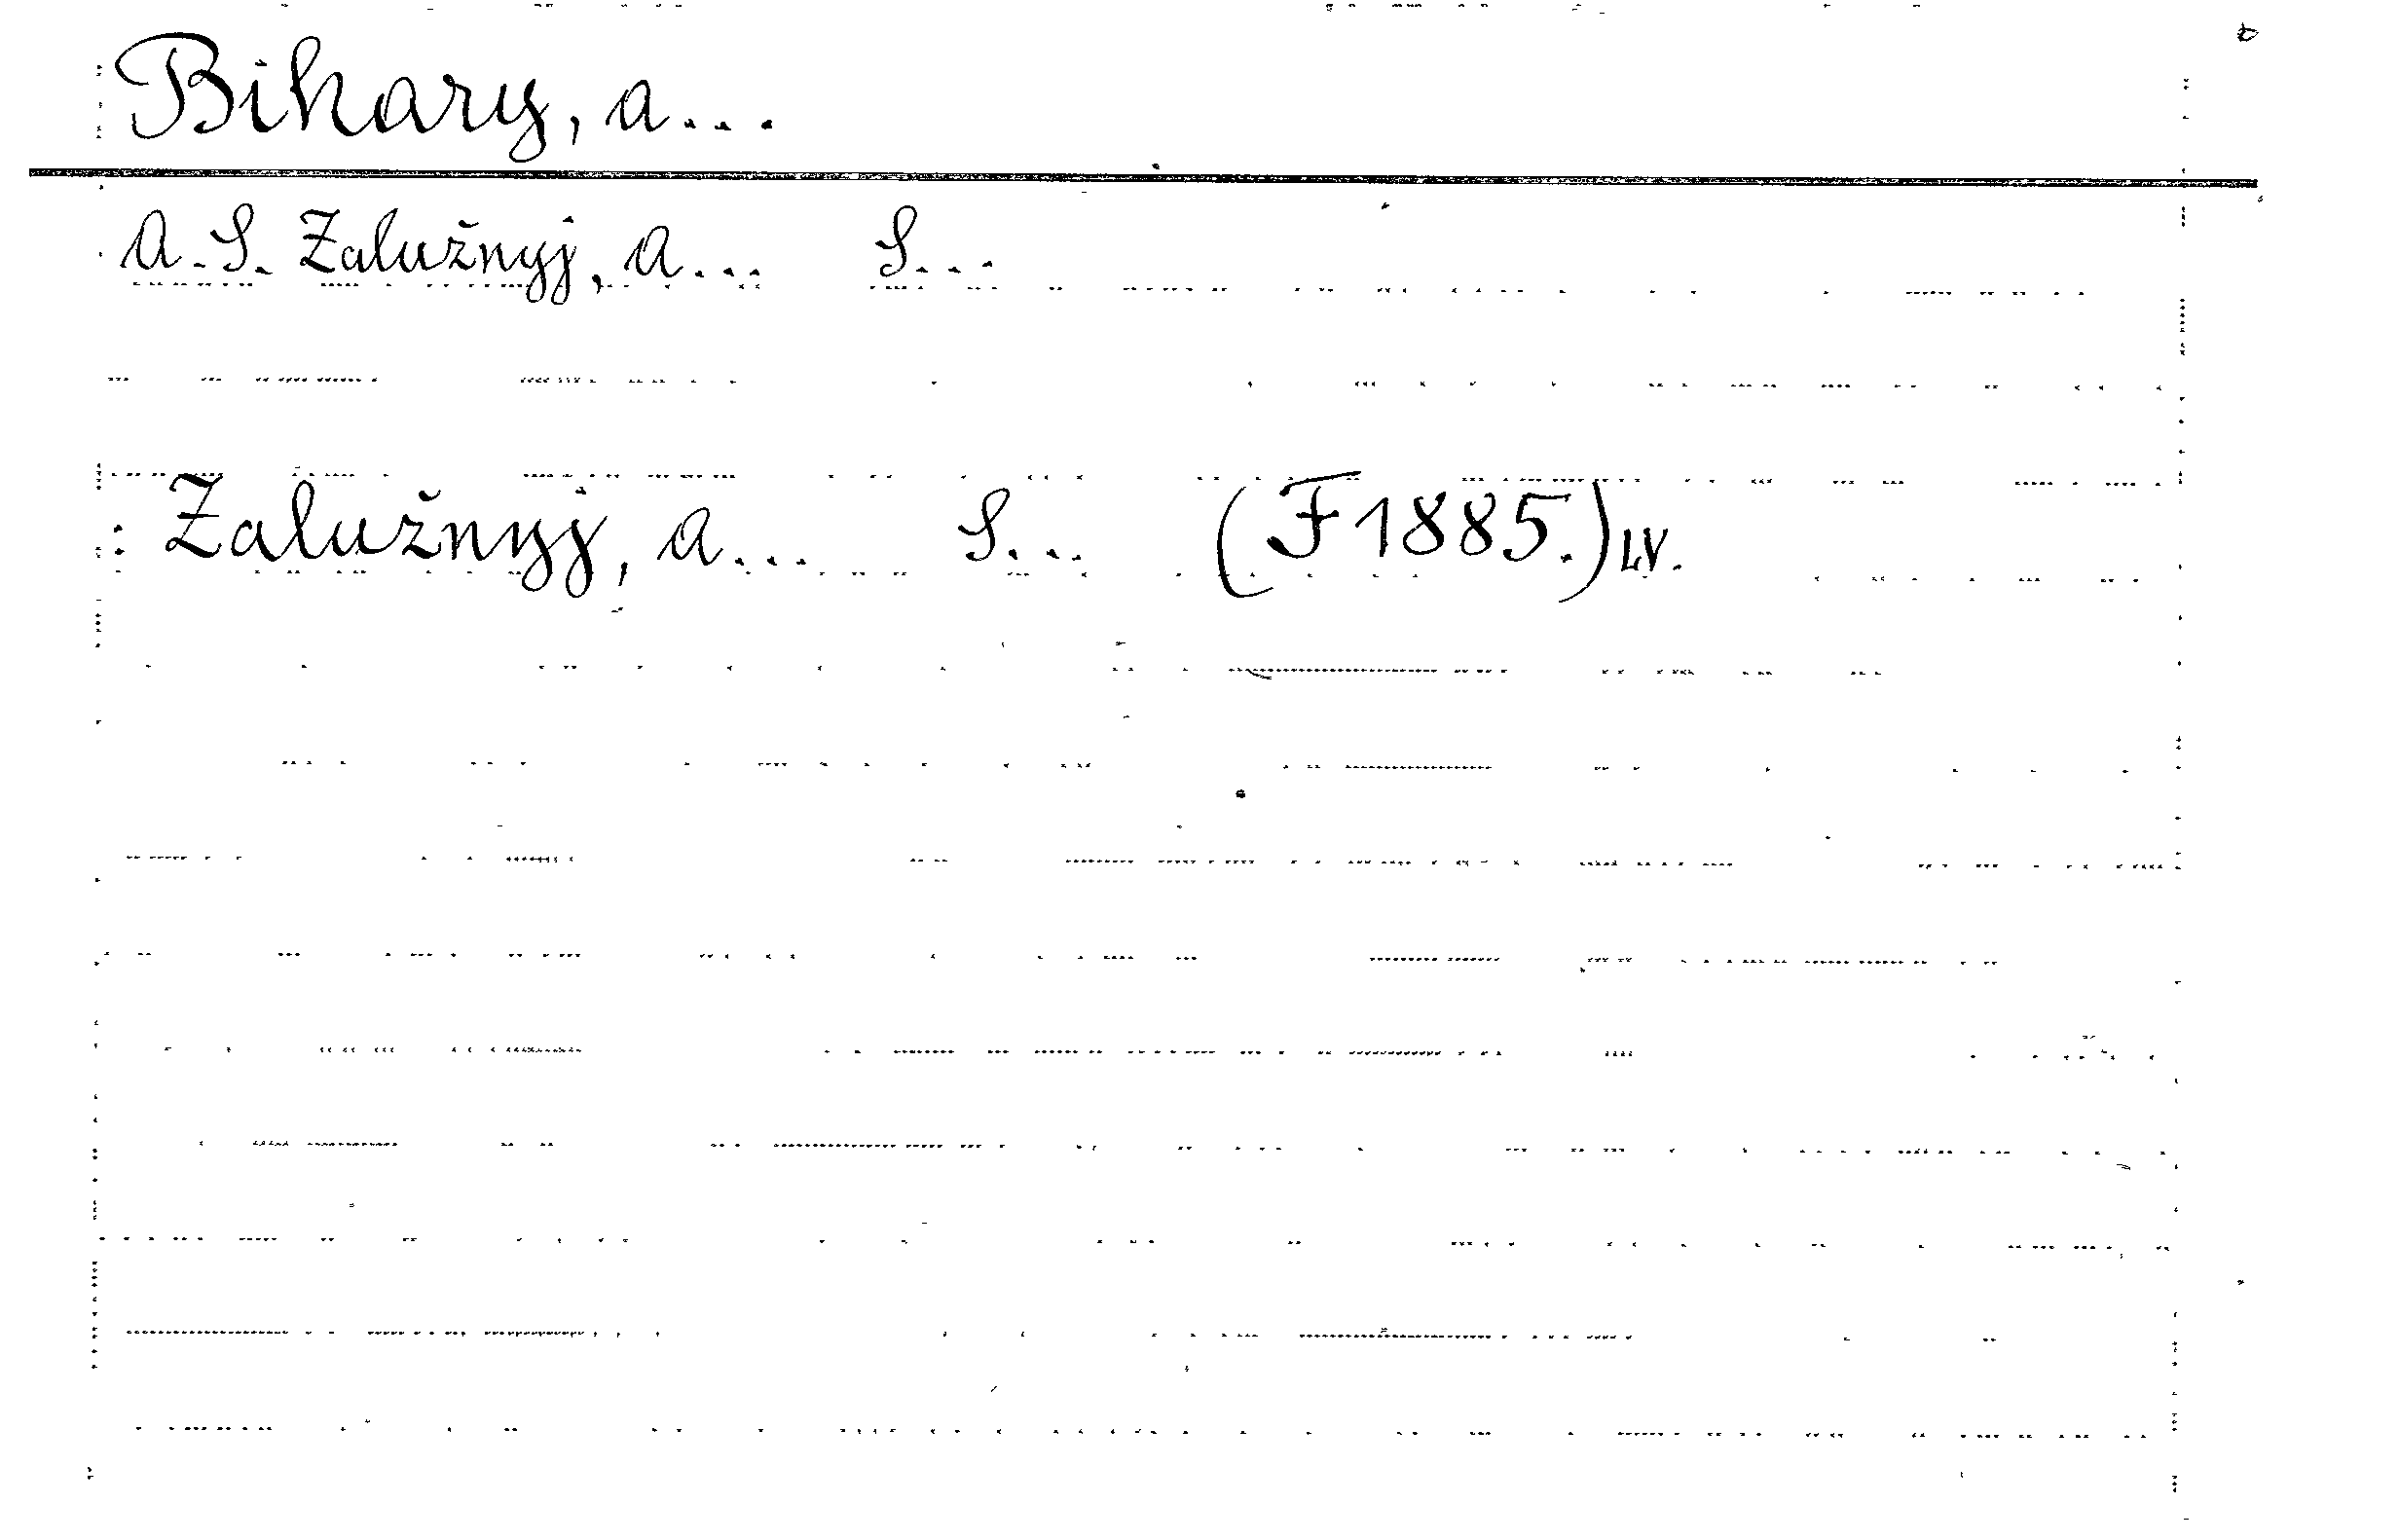 Bihary, A...
A. S. Zalužnyj, A... S...
: Zalužnyj, A... S... (F 1885.) LV.